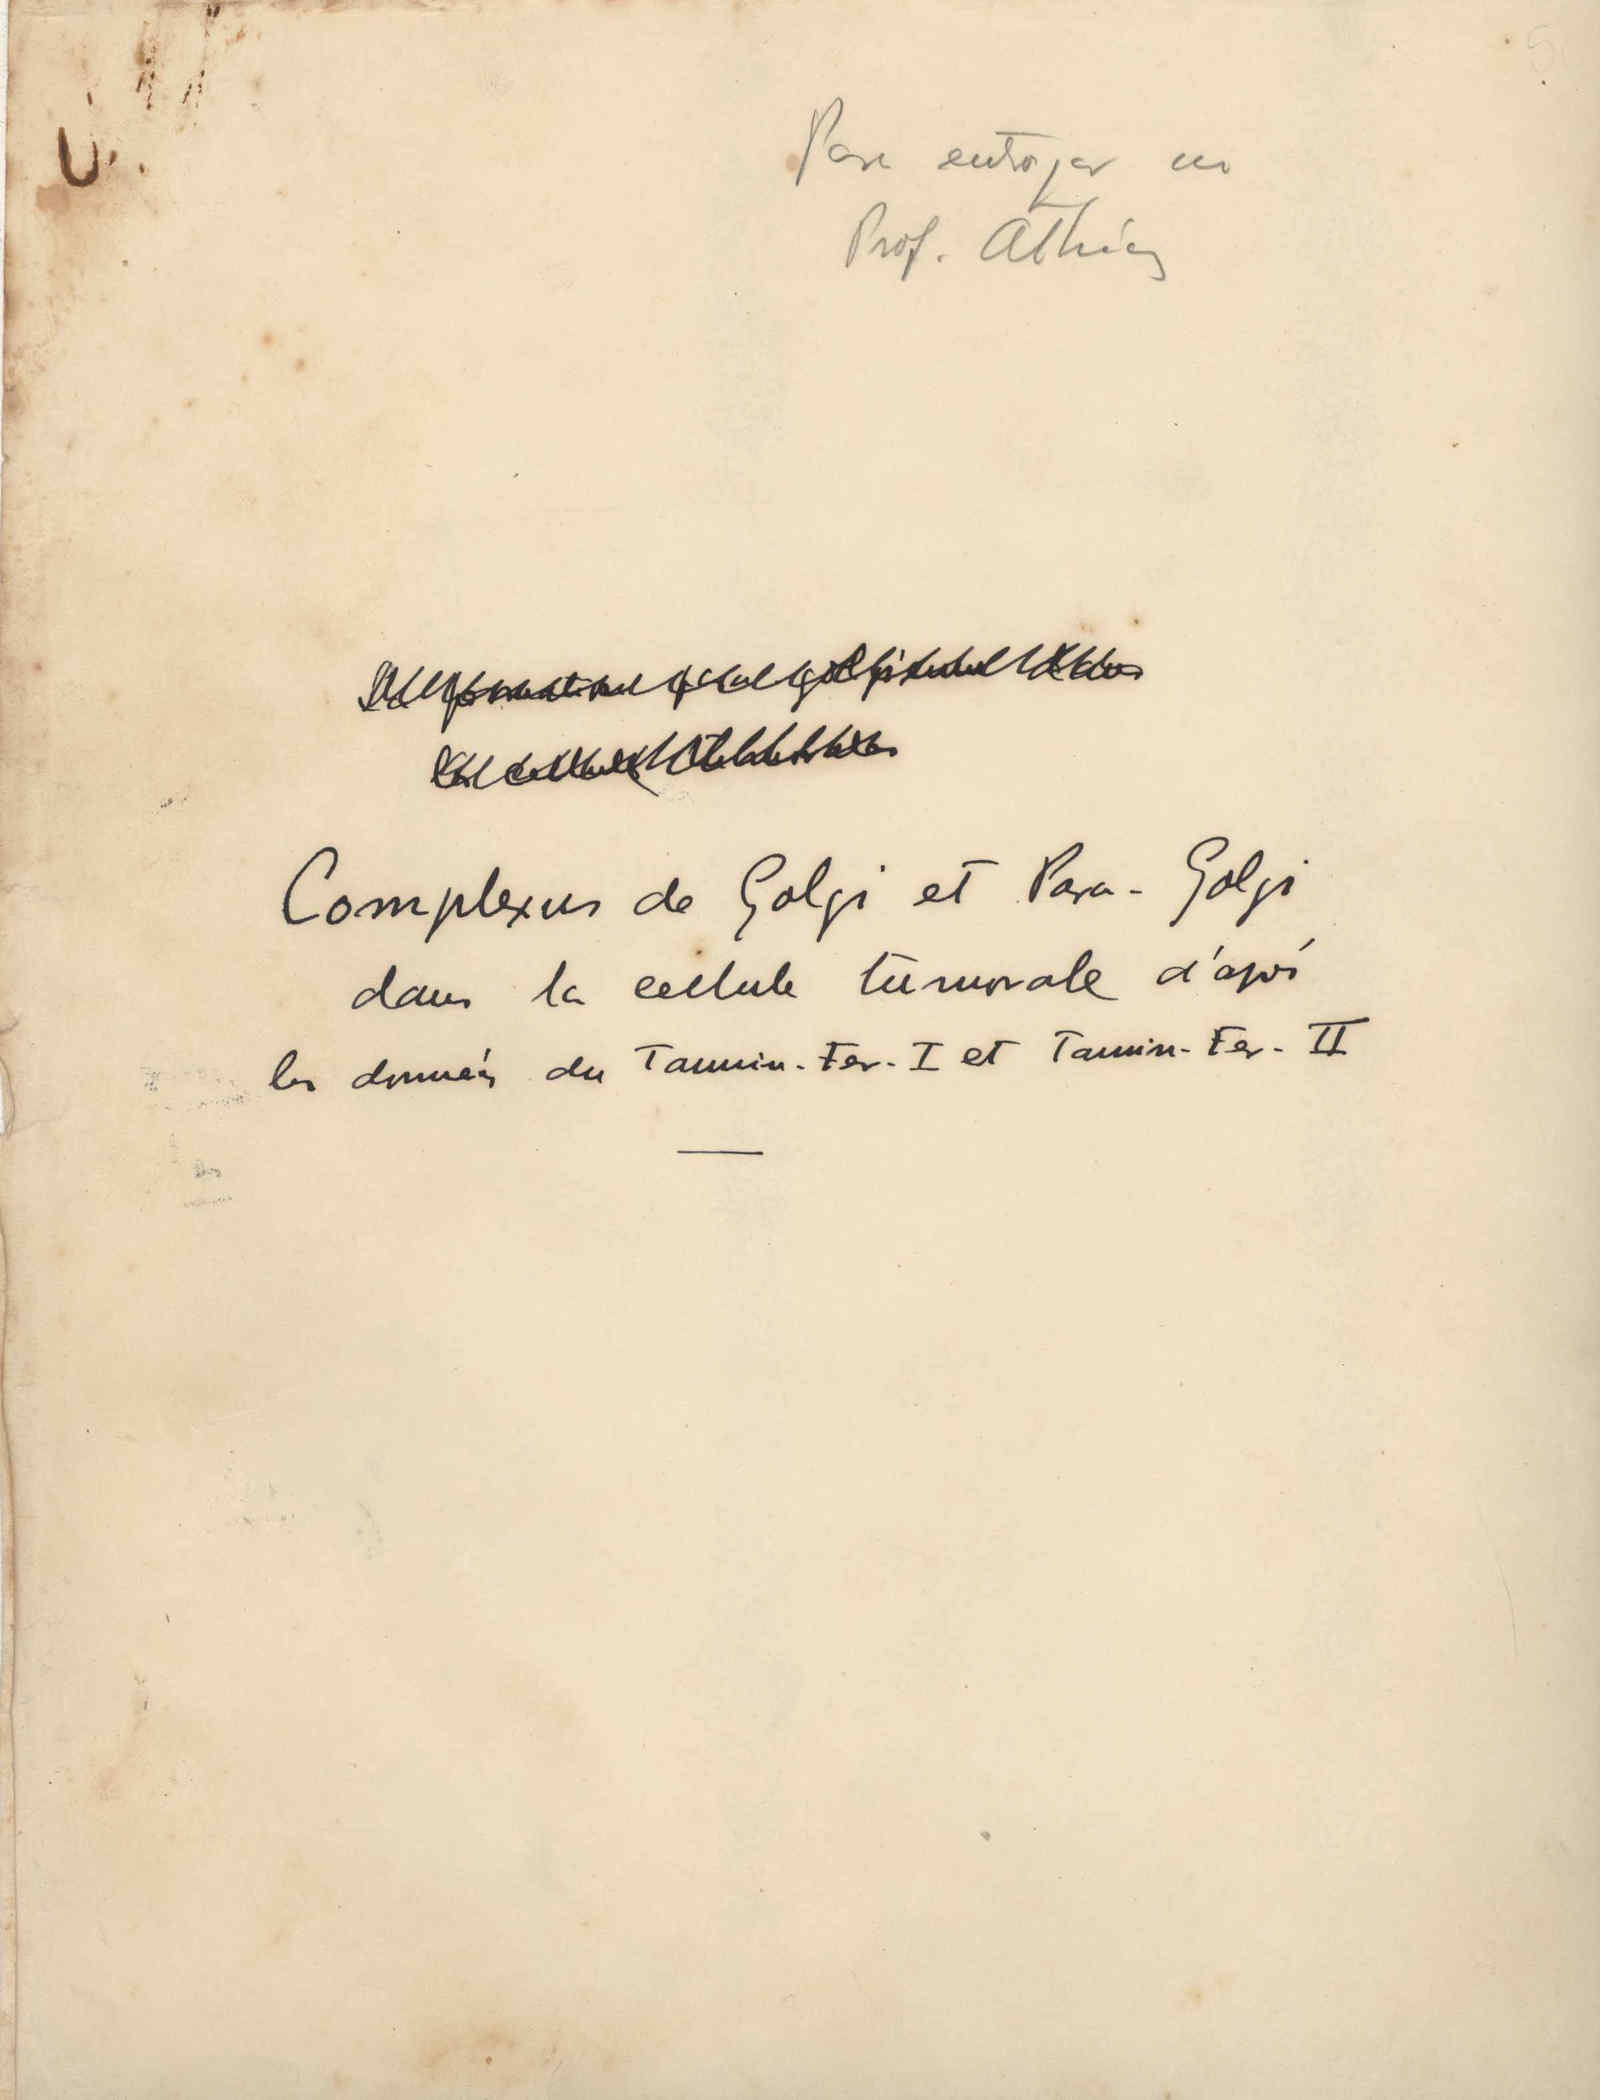 Para entregar ao
Prof. Athias
Complexus de Golgi et Para-Golgi
dans la cellule tumorale d'après
les données du Tannin-Fer-I et Tannin-Fer-II